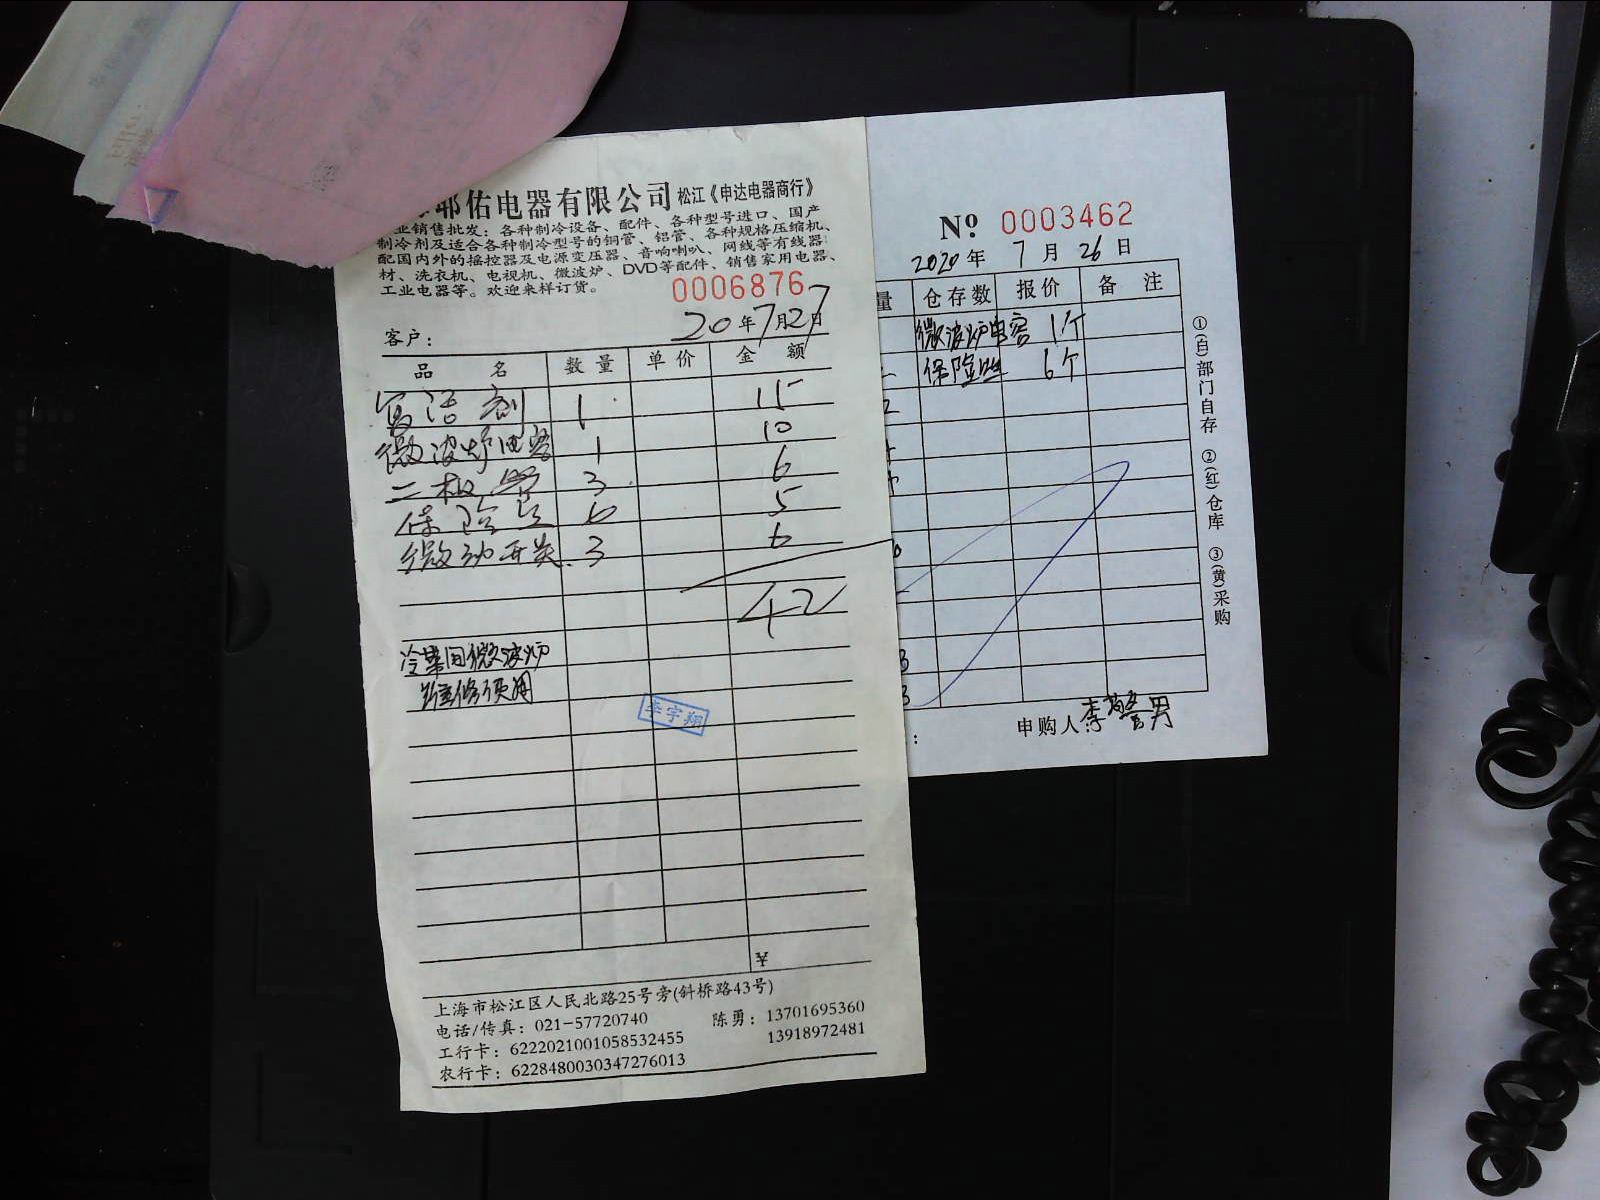 耶佑电器有限公司 松江《申达电器商行》
业销售批发：各种制冷设备、配件、各种型号进口、国产
制冷剂及适合各种制冷型号的铜管、铝管、各种规格压缩机、
配国内外的摇控器及电源变压器、音响喇叭、网线等有线器
材、洗衣机、电视机、微波炉、DVD等配件、销售家用电器、
工业电器等。欢迎来样订货。
0006876
20年7月27日
客户：
品 名 数量 单价 金 额
活剂 1 15
微波炉电容 1 10
二极管 3 6
保险丝 6 5
微动开关 3 6
42
冷菜间微波炉
维修须用
李宇翔
¥
上海市松江区人民北路25号旁(斜桥路43号)
电话/传真：021-57720740 陈勇：13701695360
工行卡：6222021001058532455 13918972481
农行卡：6228480030347276013
Nº 0003462
2020年 7月 26日
量 仓存数 报价 备 注
微波炉电容 1个
保险丝 6个
①(白)部门自存 ②(红)仓库 ③(黄)采购
申购人 李 男